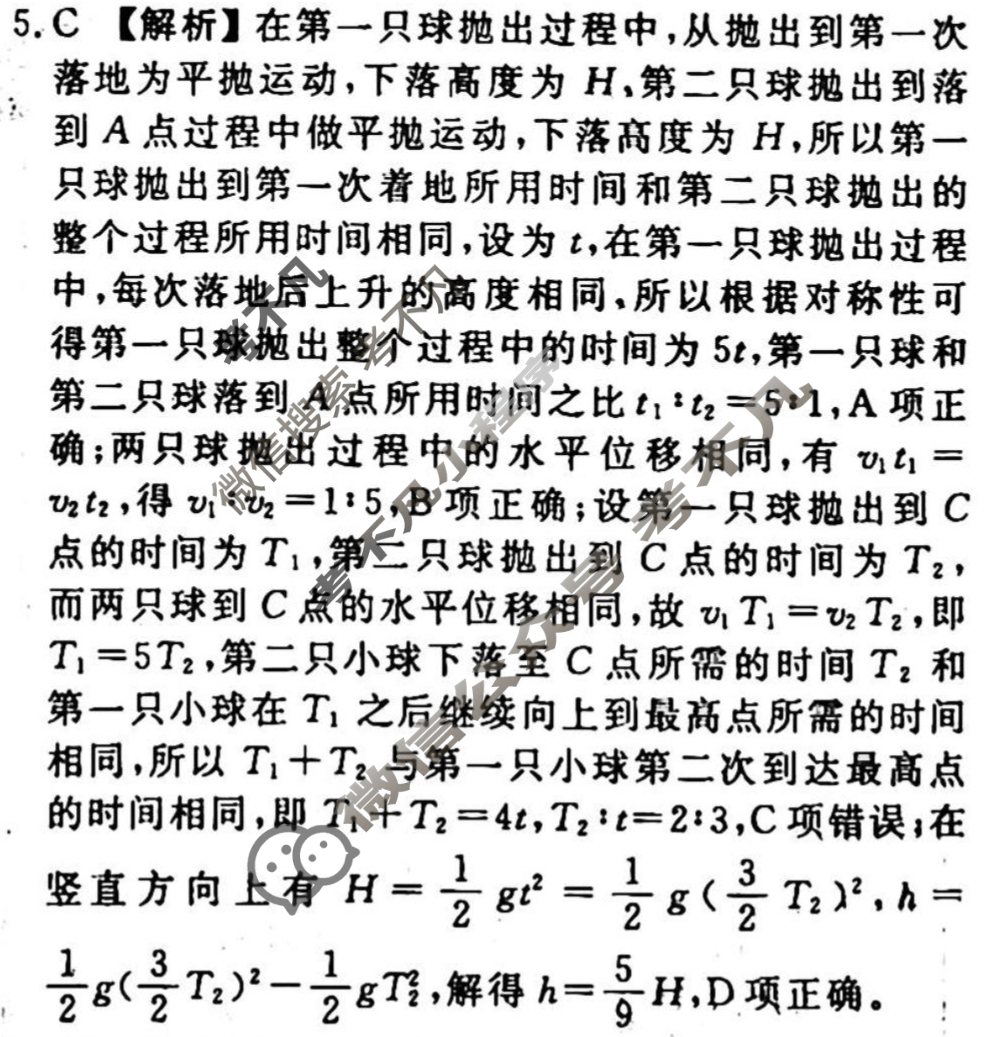 5. C 【解析】在第一只球抛出过程中,从抛出到第一次
落地为平抛运动,下落高度为 H、第二只球抛出到落
到 A 点过程中做平抛运动,下落高度为 H,所以第一
只球抛出到第一次着地所用时间和第二只球抛出的
整个过程所用时间相同,设为 t,在第一只球抛出过程
中,每次落地后上升的高度相同、所以根据对称性可
得第一只球抛出整个过程中的时间为 5t,第一只球和
第二只球落到 A 点所用时间之比 t₁∶t₂=5∶1,A 项正
确;两只球抛出过程中的水平位移相同,有 v₁t₁=
v₂t₂,得 v₁∶v₂=1∶5,B 项正确;设第一只球抛出到 C
点的时间为 T₁,第二只球抛出到 C 点的时间为 T₂,
而两只球到 C 点的水平位移相同,故 v₁T₁=v₂T₂,即
T₁=5T₂,第二只小球下落至 C 点所需的时间 T₂ 和
第一只小球在 T₁ 之后继续向上到最高点所需的时间
相同,所以 T₁+T₂ 与第一只小球第二次到达最高点
的时间相同,即 T₁+T₂=4t,T₂∶t=2∶3,C 项错误;在
竖直方向上有 H=1/2 gt²=1/2 g(3/2 T₂)²,h=
1/2 g(3/2 T₂)²-1/2 gT₂²,解得 h=5/9 H,D 项正确。
考不凡
微信搜索 考不凡
考不凡小程序
微信公众号 考不凡